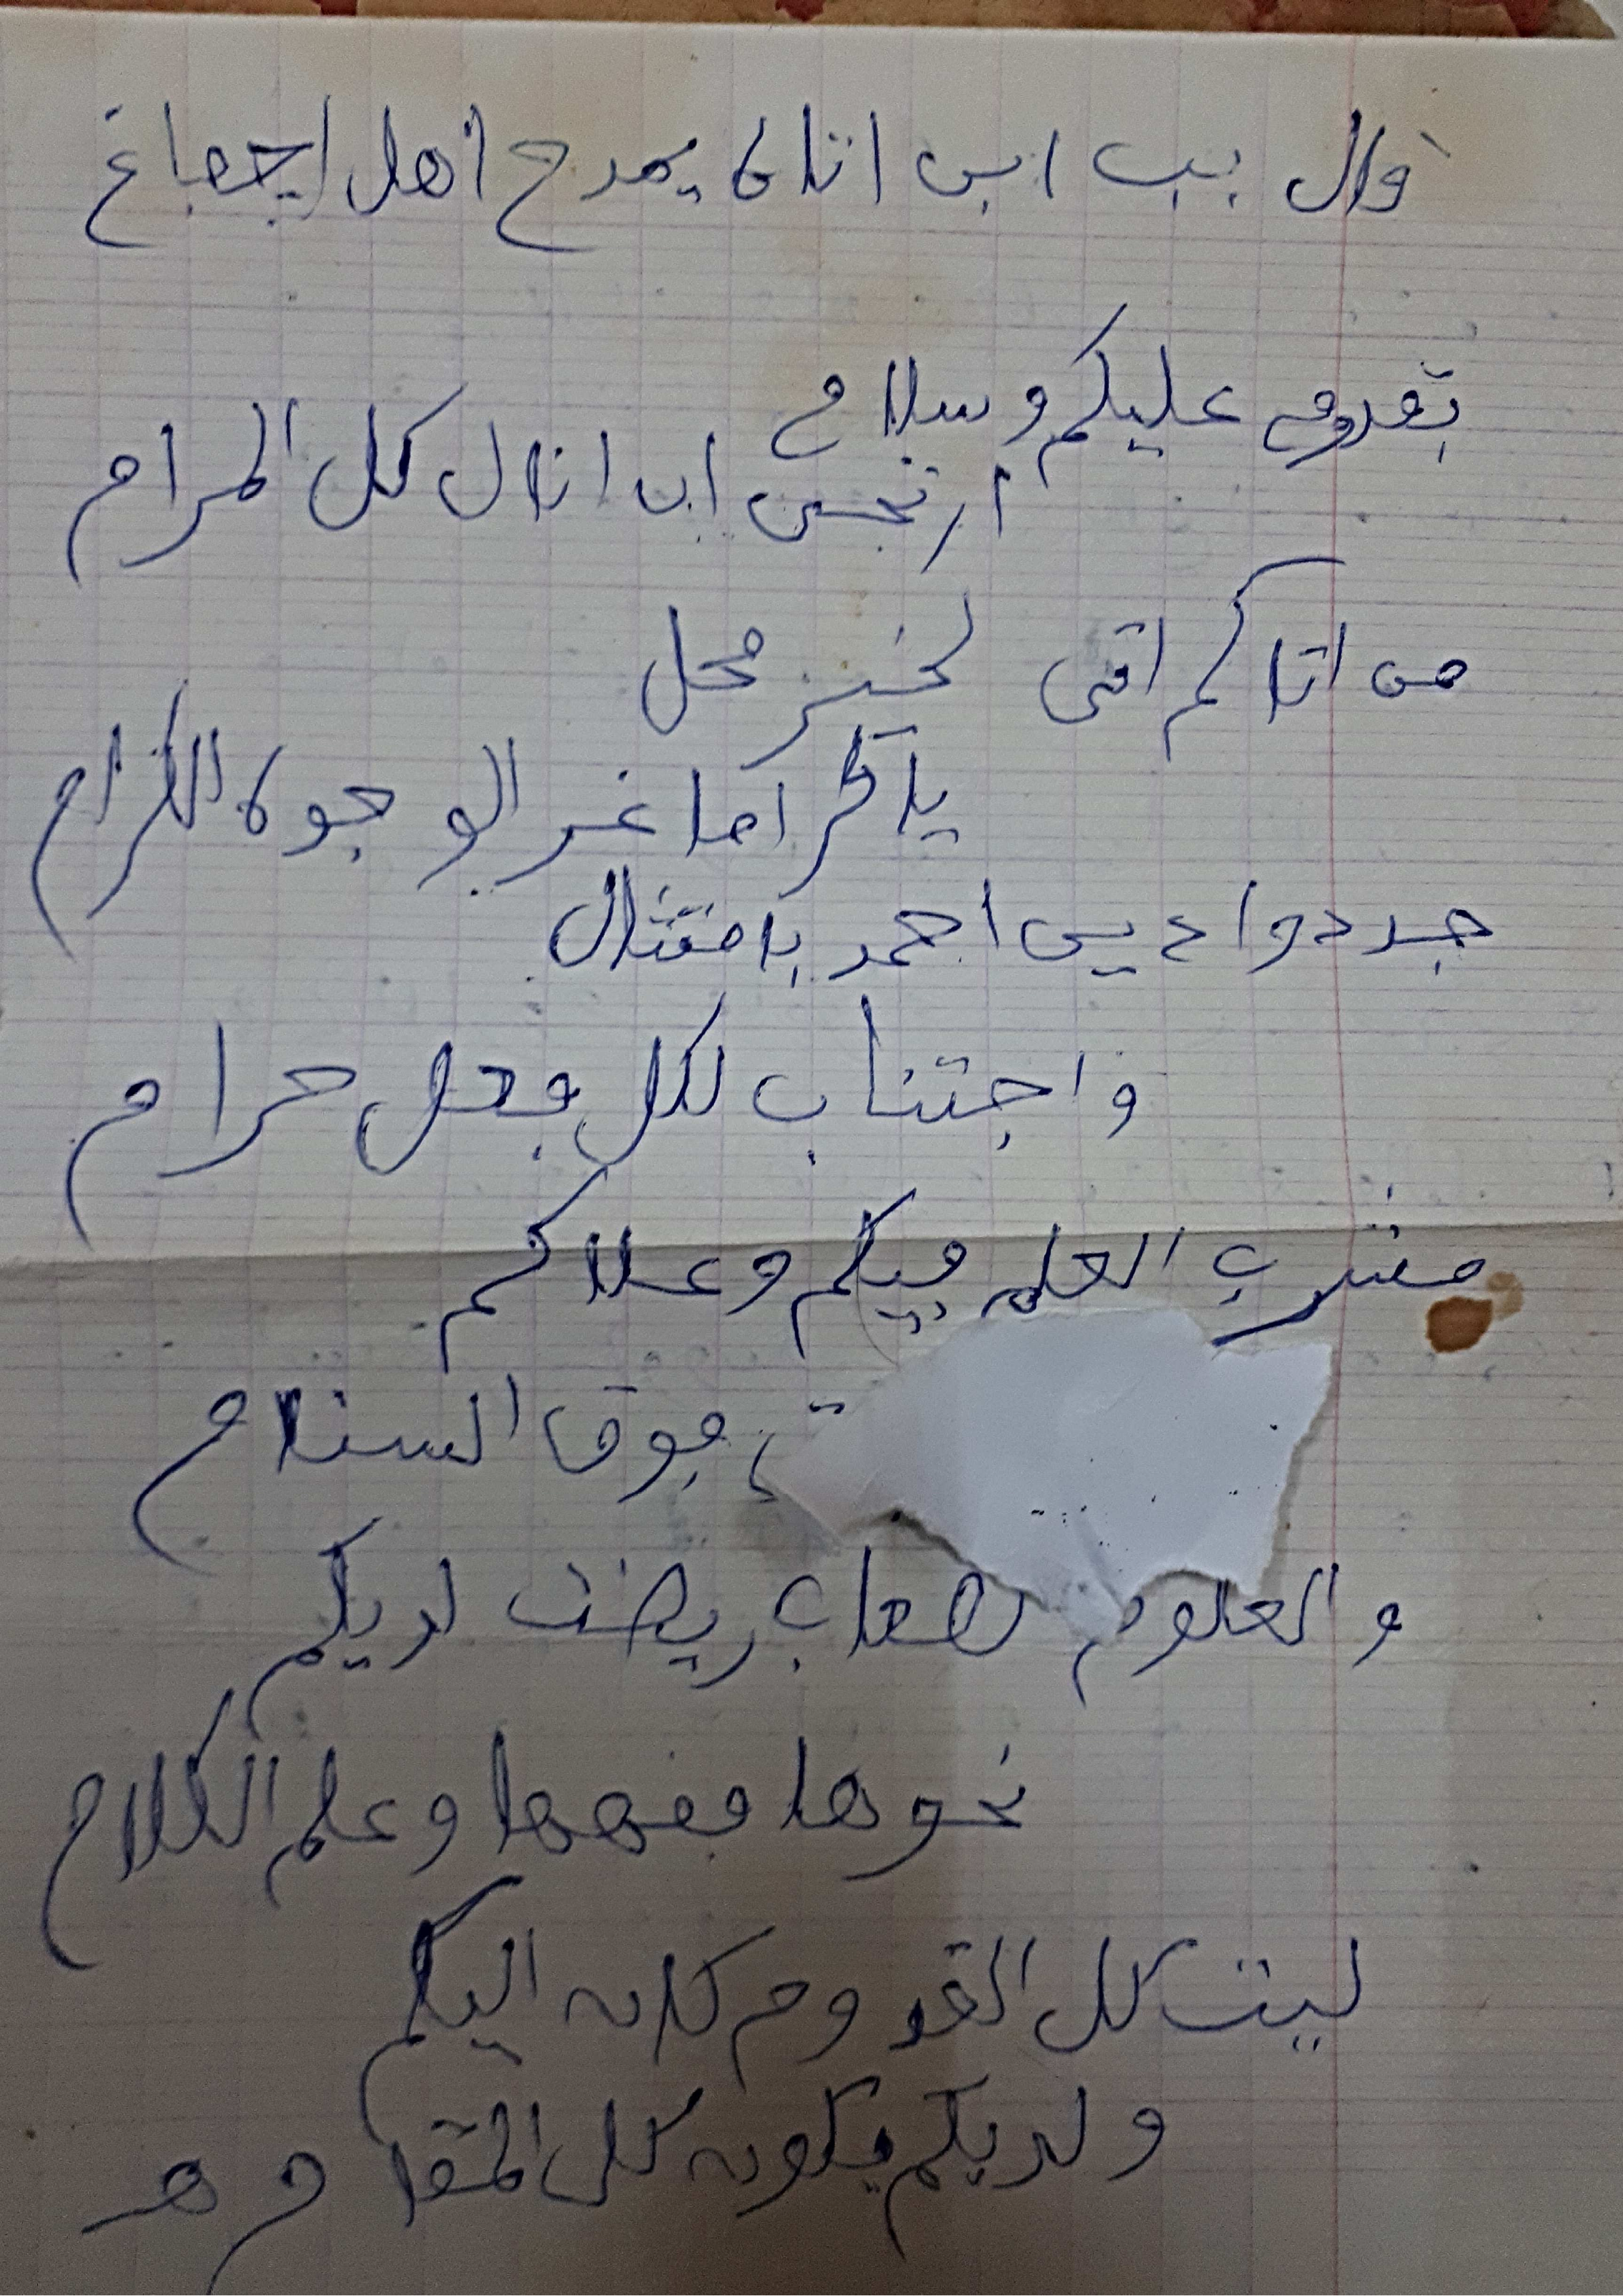 قال بب ابن اتاه يمدح أهل إجفاغ
بقدوم عليكم وسلام
ارتجى ان انال كل المرام
من اتاكم اتى لخير محل
يا كراما غر الوجوه الكرام
جددوا دين احمد بامتثال
واجتناب لكل فعل حرام
مشرب العلم فيكم وعلاكم
فوق السنام
والعلوم الصعاب ريضت لديكم
نحوها فقهها وعلم الكلام
ليت كل القدوم كان اليكم
ولديكم يكون كل المقام هـ